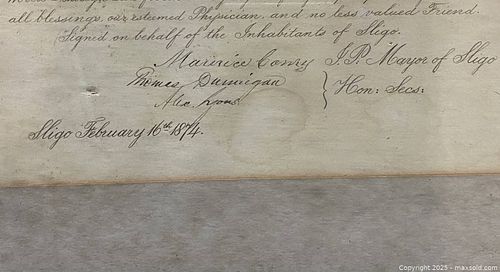 all blessings, our esteemed Physician, and no less valued Friend.
Signed on behalf of the Inhabitants of Sligo.
Maurice Conry J.P. Mayor of Sligo
Thomas Dunnigan
Alex. Lyons } Hon: Secs:
Sligo February 16th 1874.
Copyright 2025 - maxsold.com